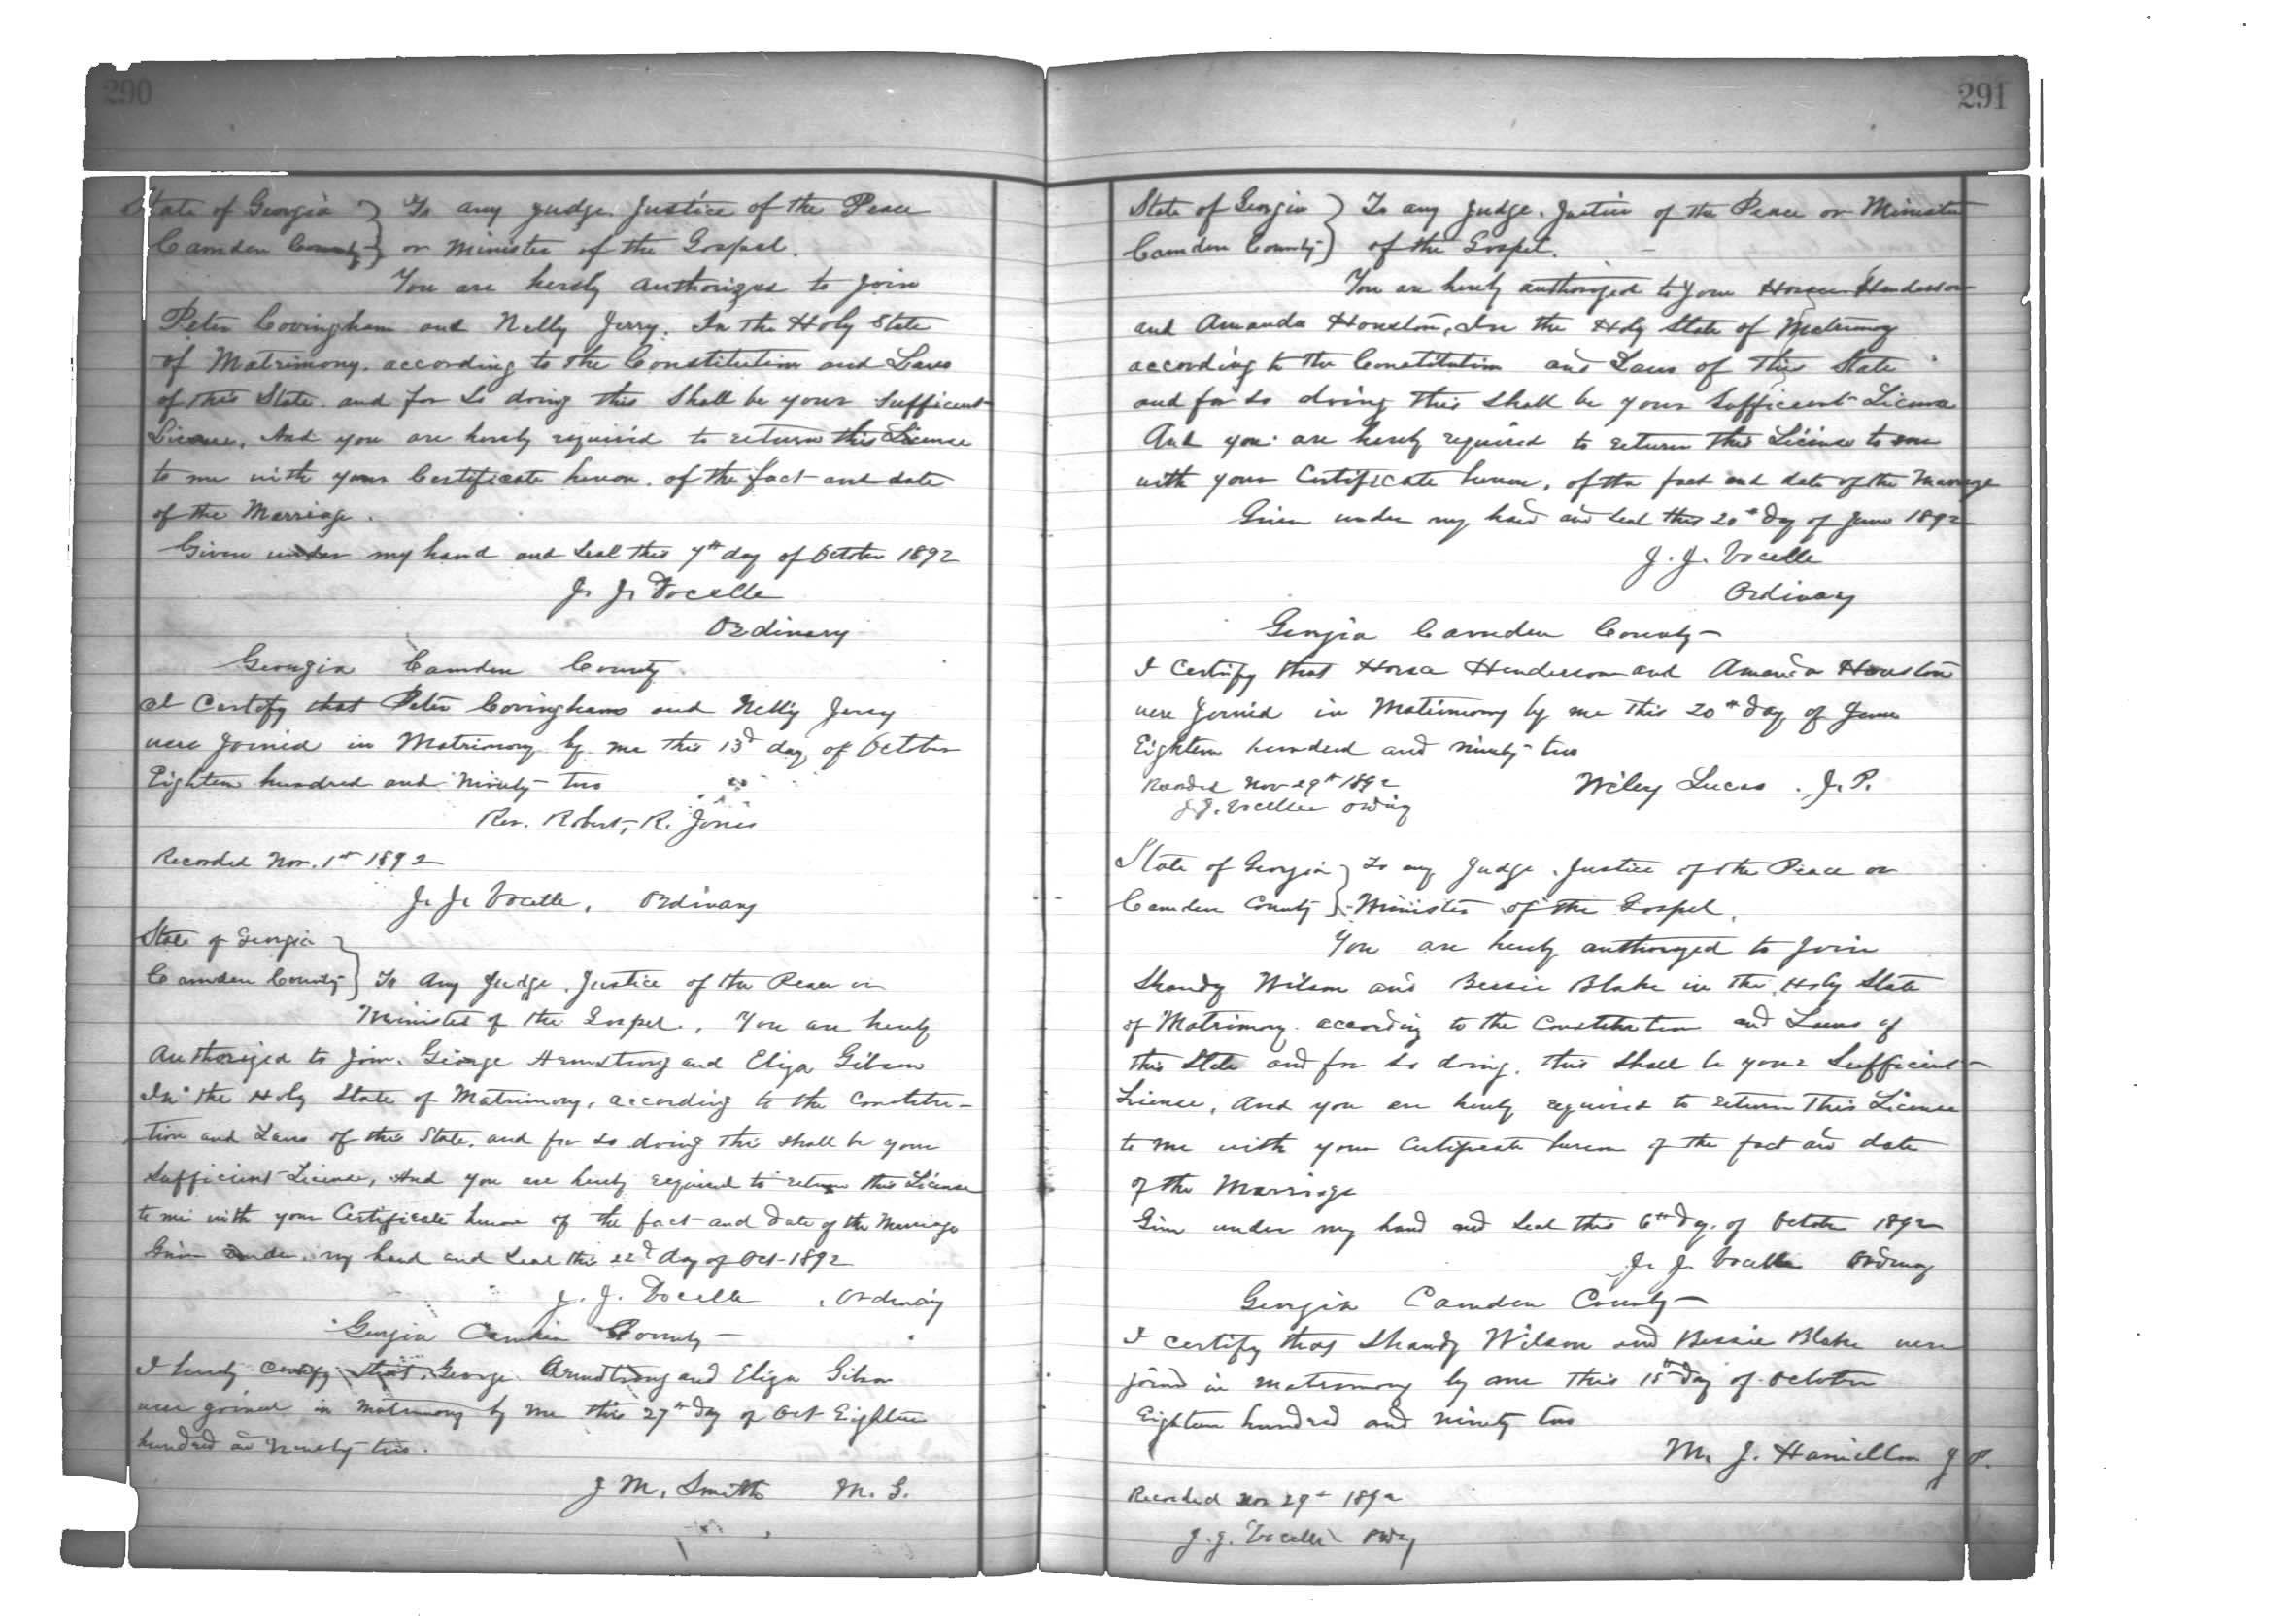 290
State of Georgia } To any Judge. Justice of the Peace
Camden County } or Minister of the Gospel.
You are hereby authorized to join
Peter Covingham and Nelly Jerry. In the Holy State
of Matrimony. according to the Constitution and Laws
of this State. and for so doing this shall be your sufficient
License. And you are hereby required to return this License
to me with your Certificate hereon. of the fact and date
of the Marriage.
Given under my hand and seal this 7th day of October 1892
J. J. Vocelle
Ordinary
Georgia Camden County
I Certify that Peter Covingham and Nelly Jerry
were Joined in Matrimony by me this 13d day of October
Eighteen hundred and Ninety-two
Rev. Robert, R. Jones
Recorded Nov. 1st 1892
J. J. Vocelle, Ordinary
State of Georgia }
Camden County } To Any Judge. Justice of the Peace or
Minister of the Gospel., You are hereby
Authorized to join. George Armstrong and Eliza Gibson
In the Holy State of Matrimony, according to the Constitu-
tion and Laws of this State, and for so doing this shall be your
sufficient License, And you are hereby required to return this License
to me with your Certificate hereon of the fact and date of the Marriage
Given under my hand and Seal this 22d day of Oct 1892
J. J. Vocelle, Ordinary
Georgia Camden County
I hereby certify that George Armstrong and Eliza Gibson
were joined in matrimony by me this 27th day of Oct Eighteen
hundred and ninety two.
J M. Smith M. G.
291
State of Georgia } To any Judge. Justice of the Peace or Minister
Camden County } of the Gospel.
You are hereby authorized to join Horace Henderson
and Amanda Houston, In the Holy State of Matrimony
according to the Constitution and Laws of this State
and for so doing this shall be your Sufficient License
And you are hereby required to return this License to me
with your Certificate hereon, of the fact and date of the Marriage
Given under my hand and seal this 20th day of June 1892
J. J. Vocelle
Ordinary
Georgia Camden County
I Certify that Horace Henderson and Amanda Houston
were Joined in Matrimony by me this 20th day of June
Eighteen hundred and ninety-two
Wiley Lucas. J. P.
Recorded Nov 29th 1892
J. J. Vocelle Ordry
State of Georgia } To any Judge. Justice of the Peace or
Camden County } Minister of the Gospel.
You are hereby authorized to join
Shandy Wilson and Bessie Blake in the Holy State
of Matrimony. according to the Constitution and Laws of
this State and for so doing. this shall be your Sufficient
License, And you are hereby required to return this License
to me with your Certificate hereon of the fact and date
of the Marriage
Given under my hand and seal this 6th day. of October 1892
J. J. Vocelle Ordinary
Georgia Camden County
I certify that Shandy Wilson and Bessie Blake were
joined in matrimony by me this 15th day of October
Eighteen hundred and ninety two
M. J. Hamilton J P.
Recorded Nov 29th 1892
J. J. Vocelle Ordry